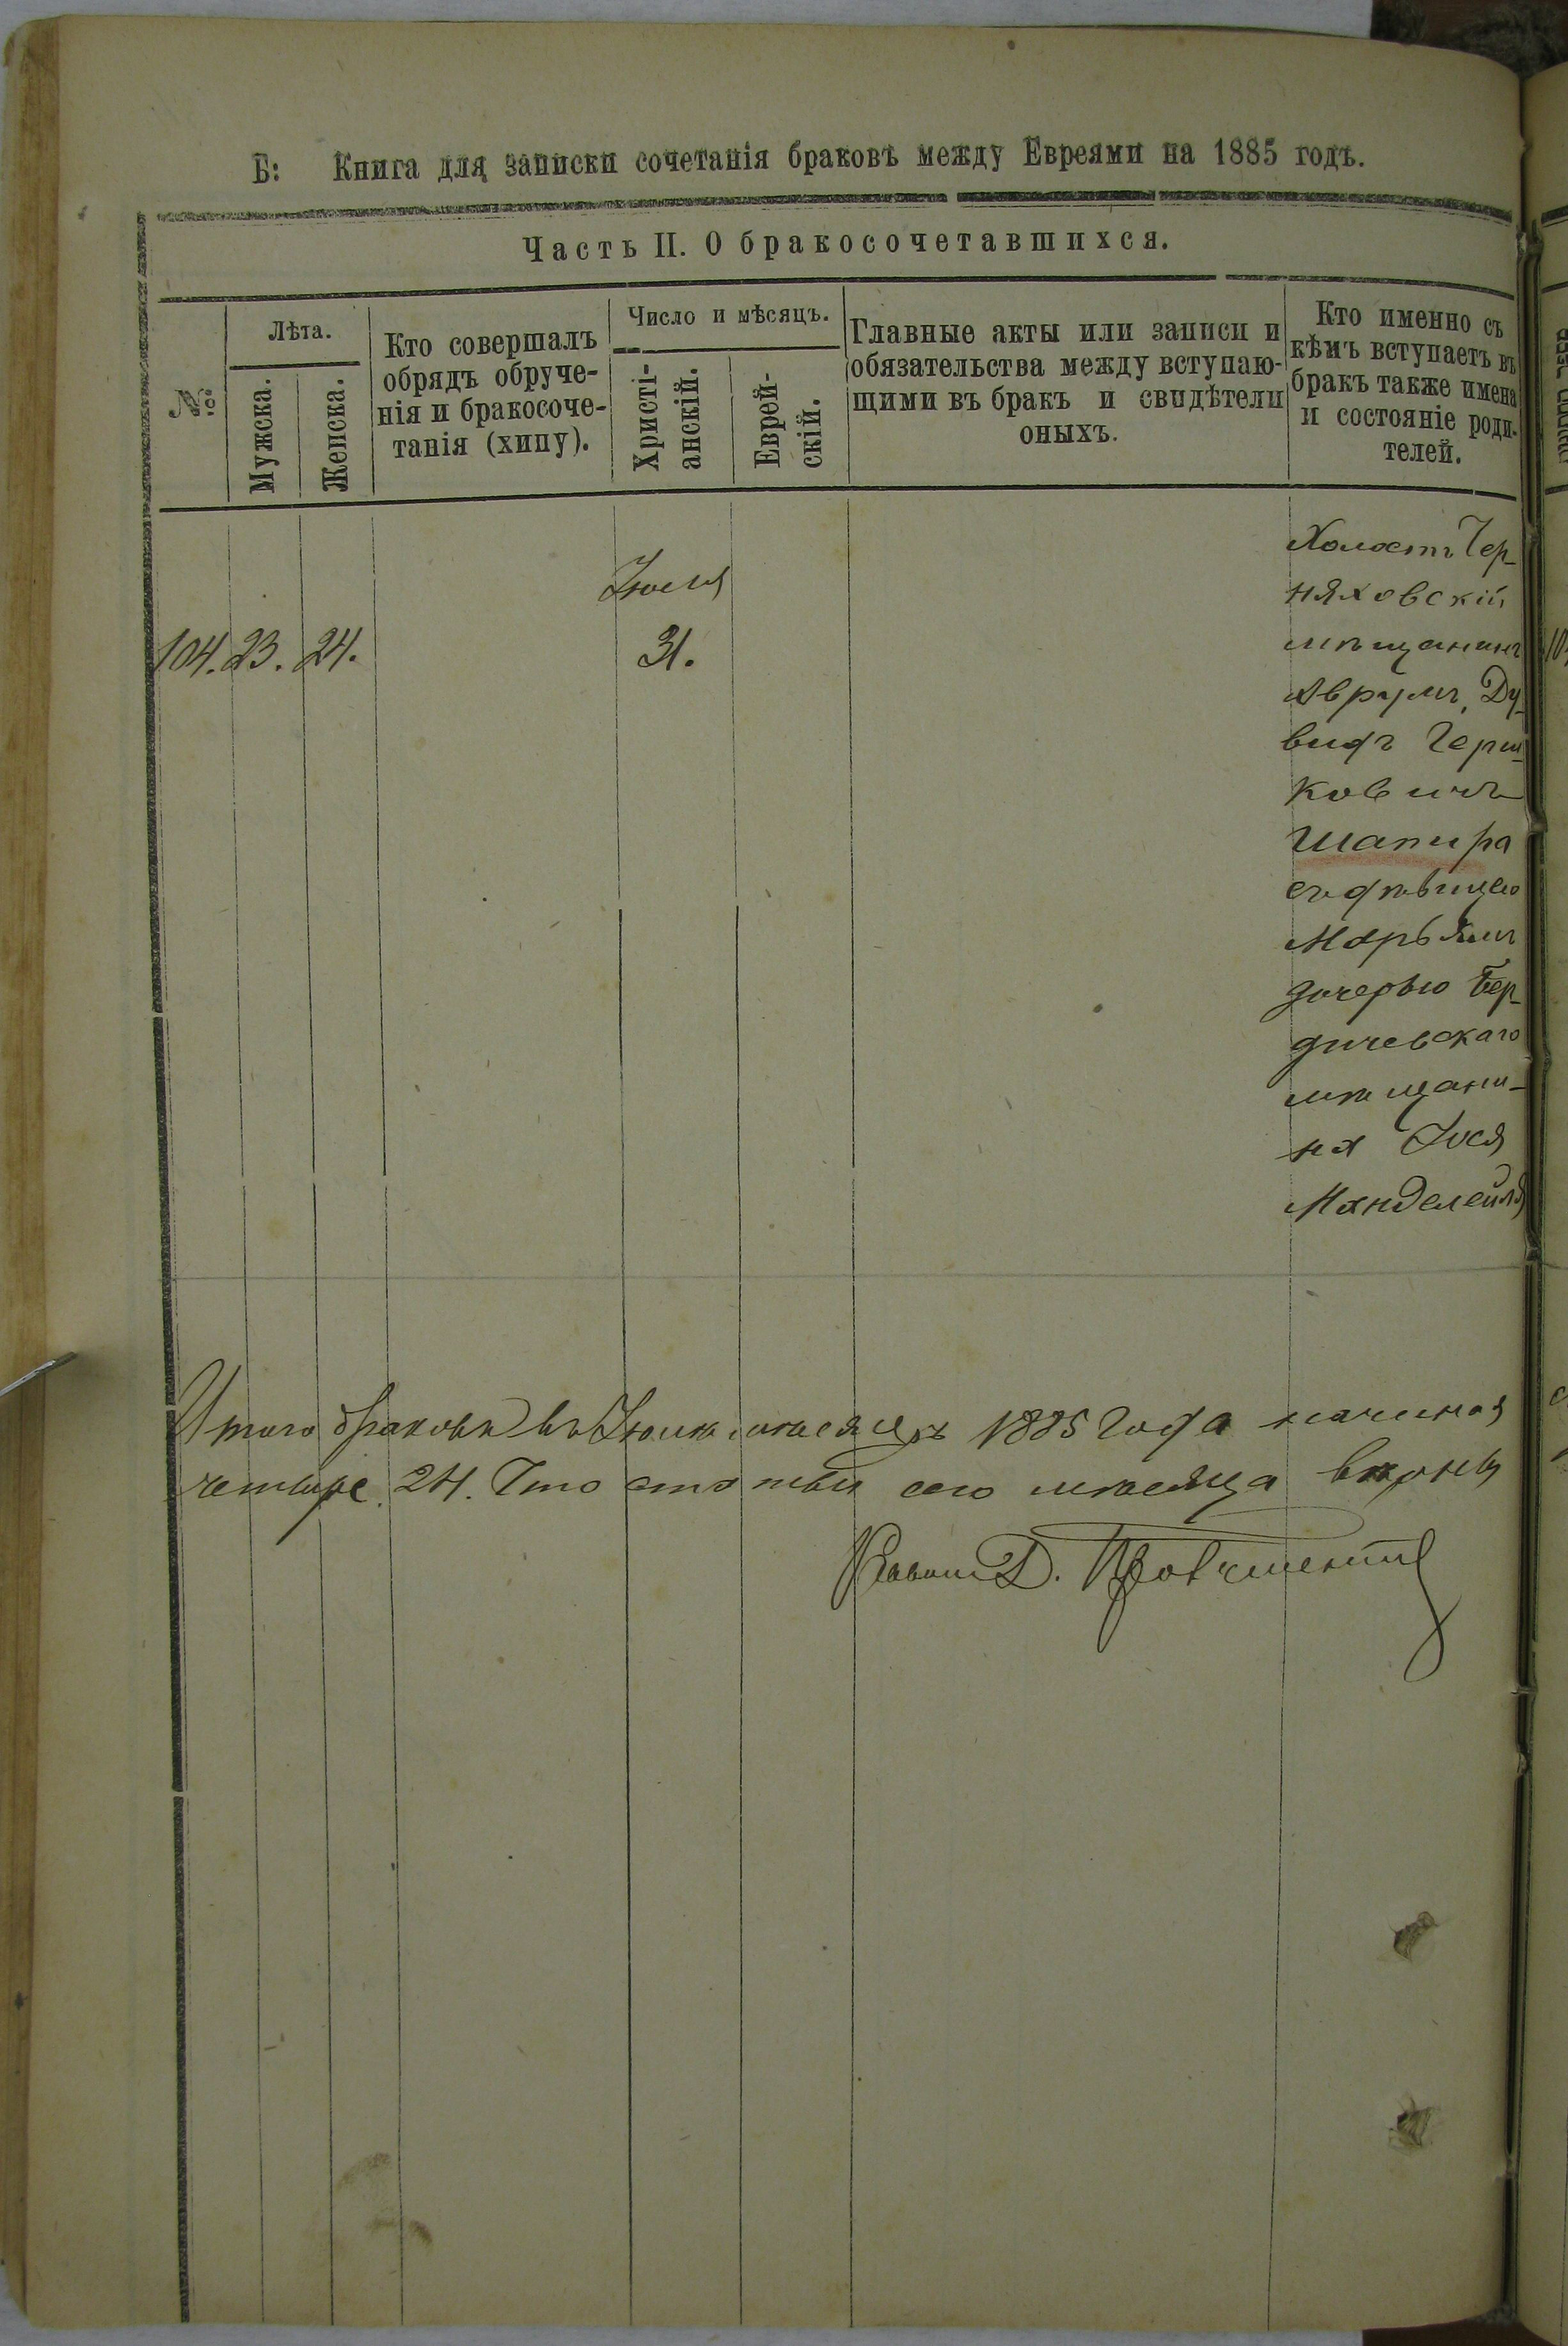 Б: Книга для записки сочетанія браковъ между Евреями на 1885 годъ.
Часть II. О бракосочетавшихся.
№
Лѣта.
Мужска.
Женска.
Кто совершалъ
обрядъ обруче-
нія и бракосоче-
танія (хипу).
Число и мѣсяцъ.
Христі-
анскій.
Еврей-
скій.
Главные акты или записи и
обязательства между вступаю-
щими въ бракъ и свидѣтели
оныхъ.
Кто именно съ
кѣмъ вступаетъ въ
бракъ также имена
и состояніе роди-
телей.
104. 23. 24.
Іюля
31.
Холостъ Чер-
няховскій
мѣщанинъ
Аврумъ, Ду-
видъ Герш-
ковичъ
Шапира
съ дѣвицею
Марьямъ
дочерью Бер-
дичевскаго
мѣщани-
на Іося
Манделейля
Итого браковъ въ Іюлѣ мѣсяцѣ 1885 года
четыре 24. Что статьи сего мѣсяца
Раввинъ Д.